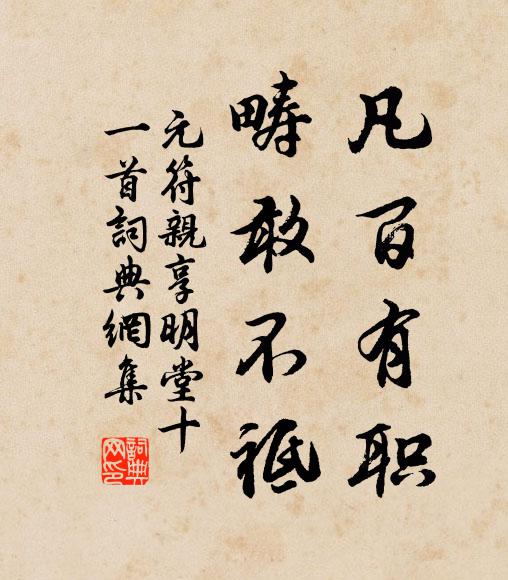 凡百有职
畴敢不祗
元符親享明堂十
一首詞典網集
詞典网印